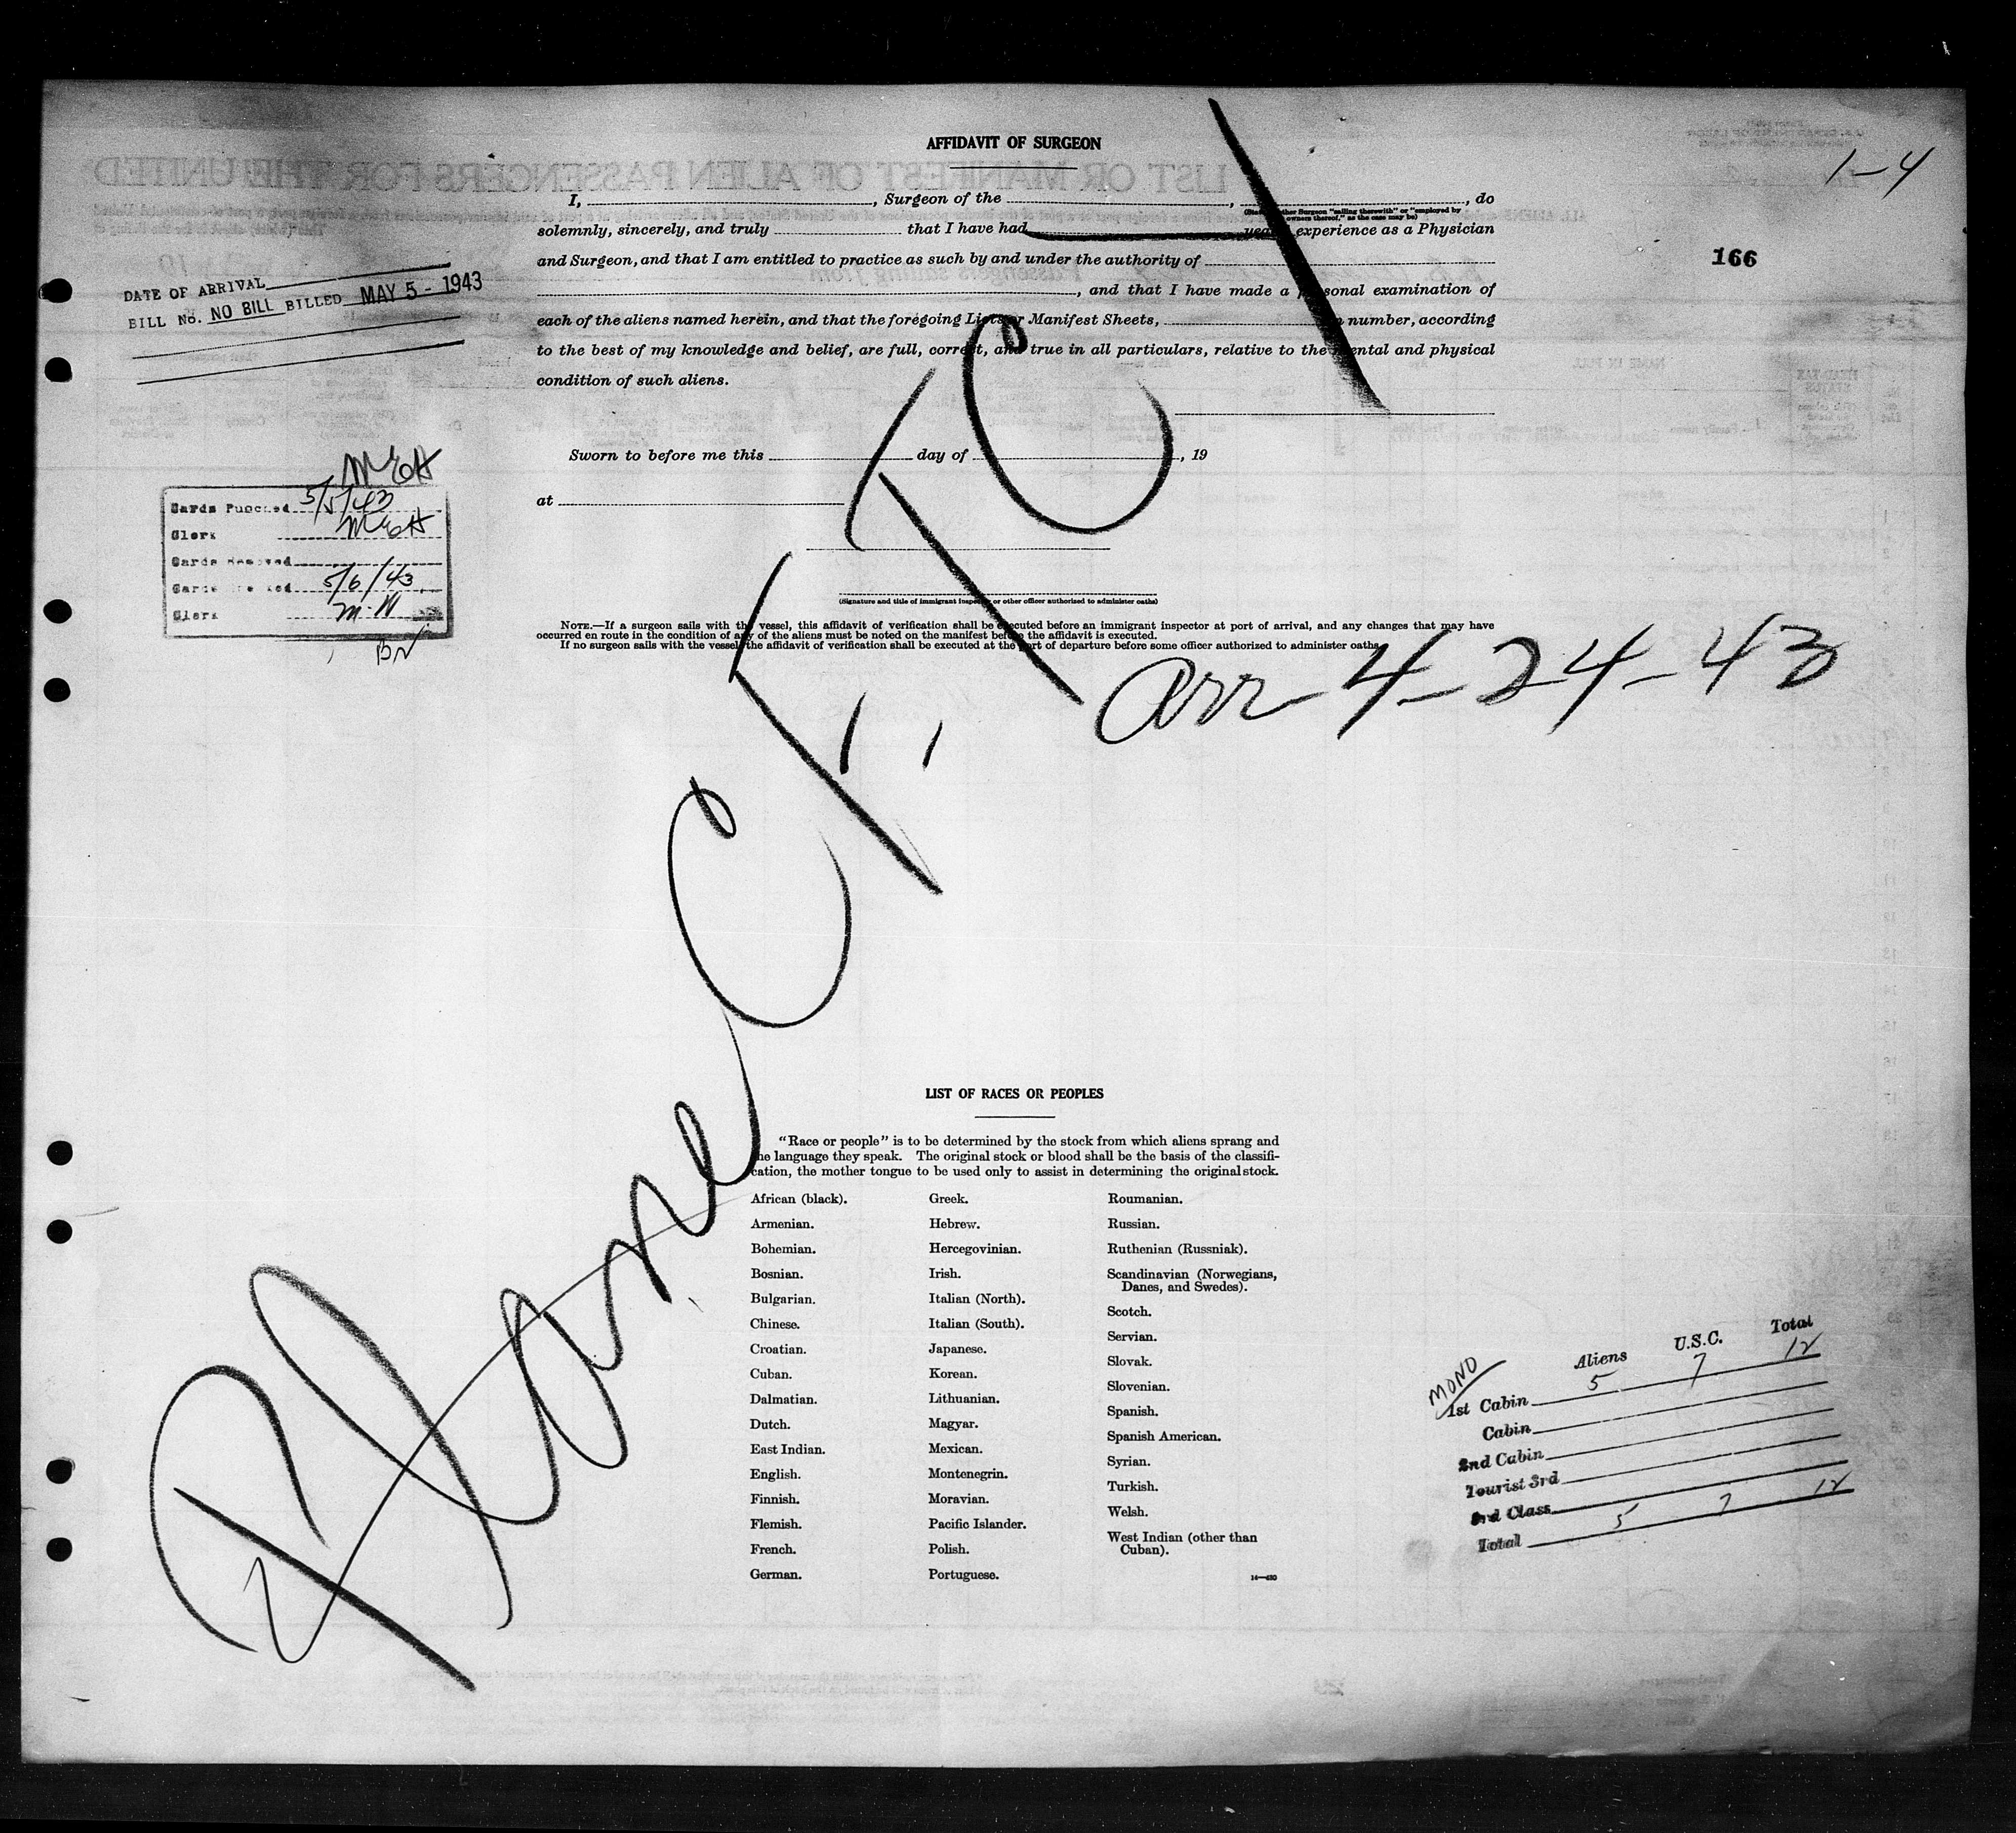 AFFIDAVIT OF SURGEON
1-4
I, , Surgeon of the , , do
solemnly, sincerely, and truly that I have had years' experience as a Physician
166
and Surgeon, and that I am entitled to practice as such by and under the authority of
, and that I have made a personal examination of
each of the aliens named herein, and that the foregoing Lists or Manifest Sheets, in number, according
to the best of my knowledge and belief, are full, correct, and true in all particulars, relative to the mental and physical
condition of such aliens.
DATE OF ARRIVAL
BILL No. NO BILL BILLED MAY 5 - 1943
Sworn to before me this day of , 19
at
Cards Punched 5/5/43
Clerk
Cards
Cards 5/6/43
Clerk M.N
(Signature and title of immigrant inspector or other officer authorized to administer oaths)
NOTE.—If a surgeon sails with the vessel, this affidavit of verification shall be executed before an immigrant inspector at port of arrival, and any changes that may have
occurred en route in the condition of any of the aliens must be noted on the manifest before the affidavit is executed.
If no surgeon sails with the vessel, the affidavit of verification shall be executed at the port of departure before some officer authorized to administer oaths.
Arr 4-24-43
Plane
LIST OF RACES OR PEOPLES
"Race or people" is to be determined by the stock from which aliens sprang and
the language they speak. The original stock or blood shall be the basis of the classifi-
cation, the mother tongue to be used only to assist in determining the original stock.
African (black).
Armenian.
Bohemian.
Bosnian.
Bulgarian.
Chinese.
Croatian.
Cuban.
Dalmatian.
Dutch.
East Indian.
English.
Finnish.
Flemish.
French.
German.
Greek.
Hebrew.
Hercegovinian.
Irish.
Italian (North).
Italian (South).
Japanese.
Korean.
Lithuanian.
Magyar.
Mexican.
Montenegrin.
Moravian.
Pacific Islander.
Polish.
Portuguese.
Roumanian.
Russian.
Ruthenian (Russniak).
Scandinavian (Norwegians,
Danes, and Swedes).
Scotch.
Servian.
Slovak.
Slovenian.
Spanish.
Spanish American.
Syrian.
Turkish.
Welsh.
West Indian (other than
Cuban).
MONO
Aliens U.S.C. Total
1st Cabin 5 7 12
Cabin
2nd Cabin
Tourist 3rd
3rd Class
Total 5 7 12